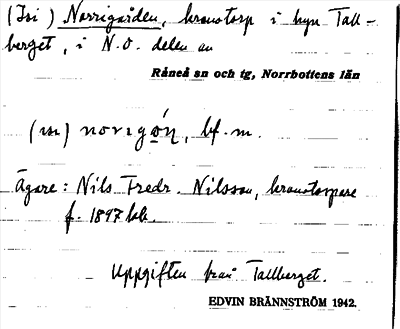 (Isi) Norrigården, kronotorp i byn Tall-
berget, i N.O. delen av
Råneå sn och tg, Norrbottens län
bf. m.
Ägare: Nils Fredr. Nilsson, kronotorpare
f. 1897
Uppgiften från Tallberget.
EDVIN BRÄNNSTRÖM 1942.